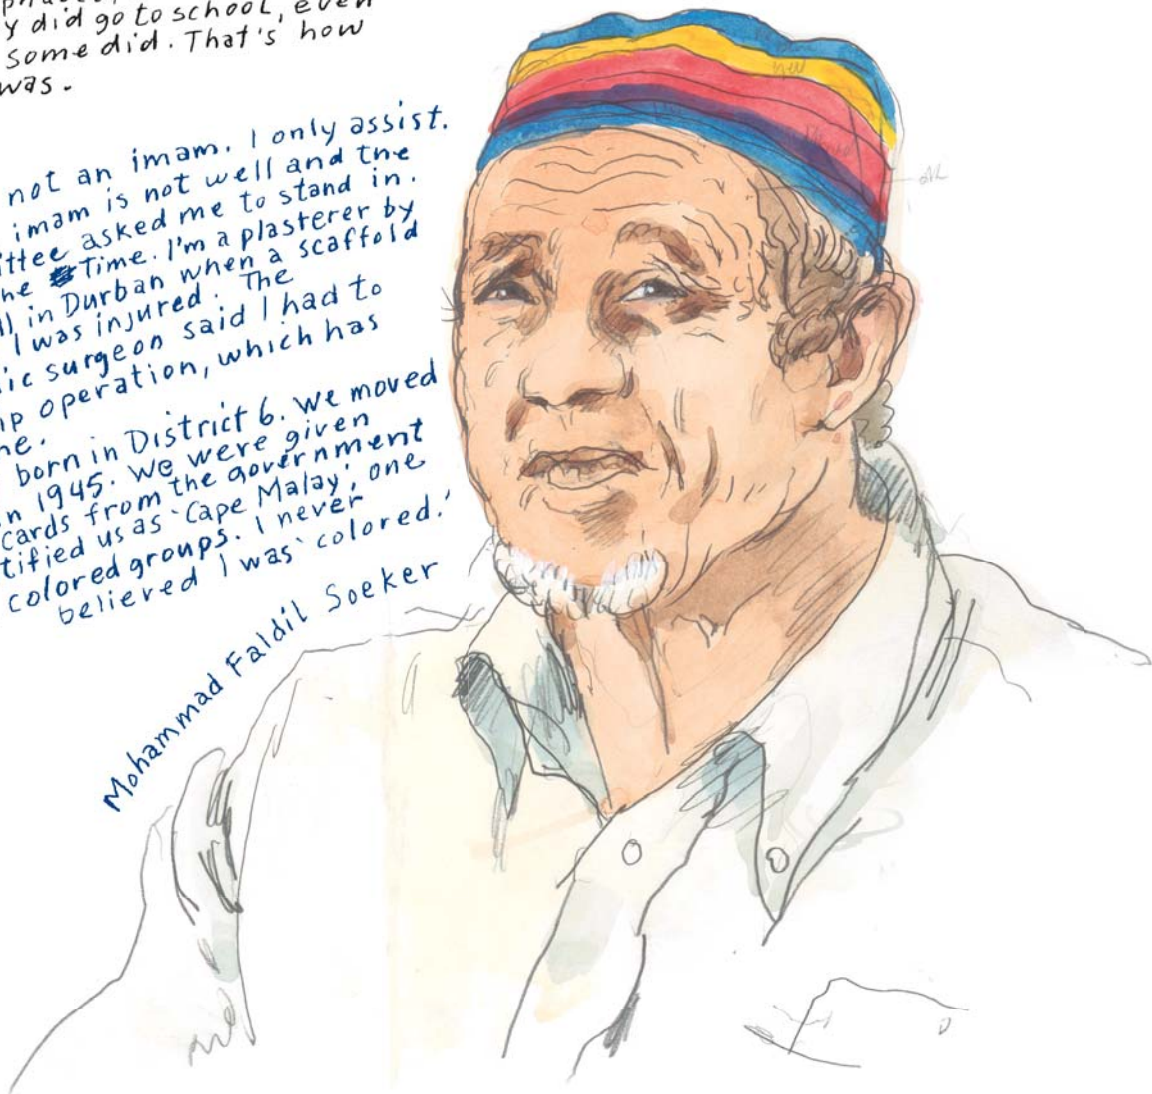 y did go to school, even
some did. That's how
was.
not an imam. I only assist.
imam is not well and the
ittee asked me to stand in.
he Time. I'm a plasterer by
in Durban when a scaffold
I was injured. The
ic surgeon said I had to
ip operation, which has
ne.
born in District 6. We moved
n 1945. We were given
cards from the government
tified us as 'Cape Malay', one
colored groups. I never
believed I was 'colored.'
Mohammad Faldil Soeker